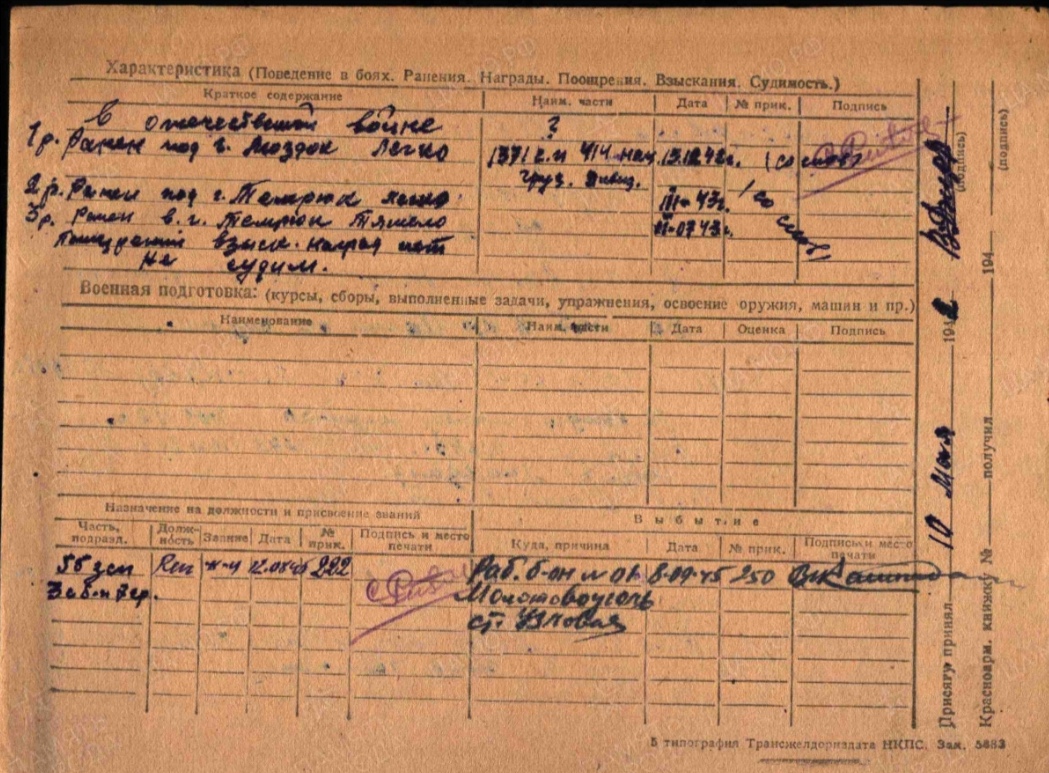 Характеристика (Поведение в боях. Ранения. Награды. Поощрения. Взыскания. Судимость.)
Краткое содержание Наим. части Дата № прик. Подпись
В отечественной войне ?
1 р. Ранен под г. Моздок легко 1371 с.п 414 нац. 13.12.42г. (со слов)
груз. дивиз.
2 р. Ранен под г. Темрюк легко III-43г. (со слов)
3 р. Ранен в. г. Темрюк тяжело
взыск. наград нет
не судим.
Военная подготовка: (курсы, сборы, выполненные задачи, упражнения, освоение оружия, машин и пр.)
Наименование Наим. части Дата Оценка Подпись
Назначение на должности и присвоение званий
Выбытие
Часть, подразд. Должность Звание Дата № прик. Подпись и место печати
Куда, причина Дата № прик. Подпись и место печати
222 Раб. б-он № 8-09-45 250
Молотовуголь
ст. Узловая
Присягу принял 10 Мая 1942 (подпись)
Красноарм. книжку № получил 194 (подпись)
5 типография Трансжелдориздата НКПС. Зак. 5683
ЦАМО.РФ